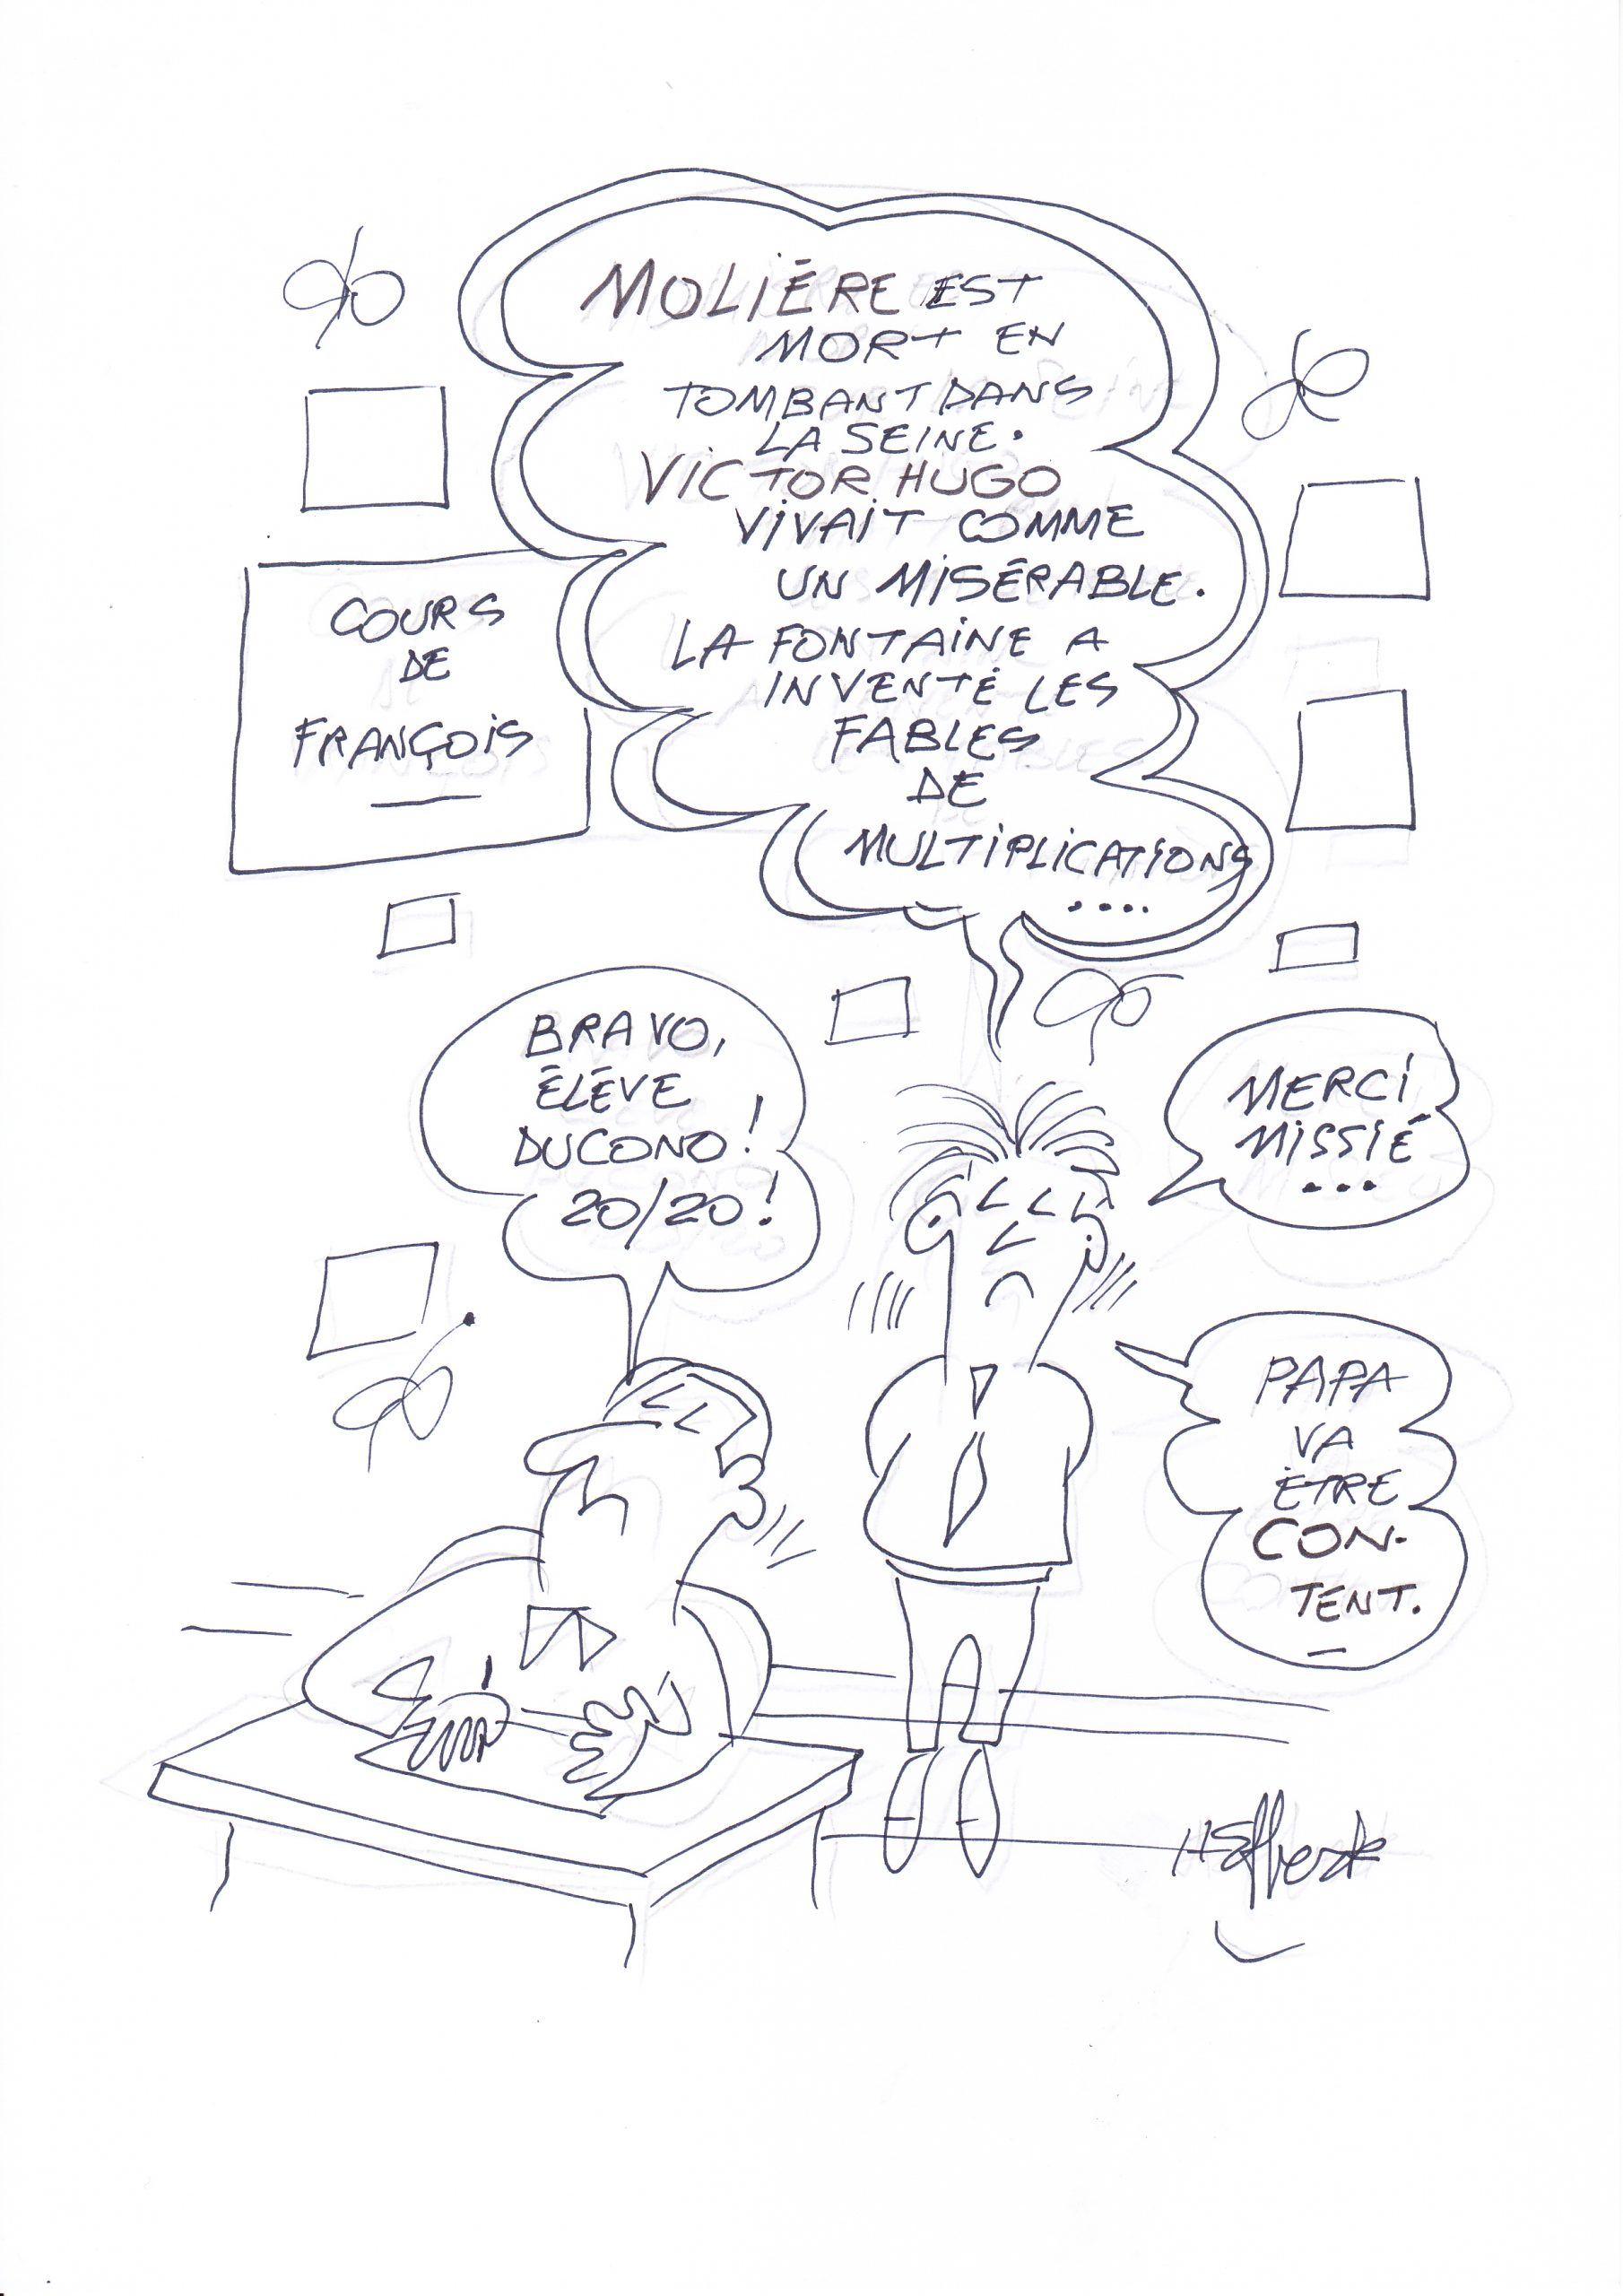 MOLIÈRE EST
MORT EN
TOMBANT DANS
LA SEINE.
VICTOR HUGO
VIVAIT COMME
UN MISÉRABLE.
LA FONTAINE A
INVENTÉ LES
FABLES
DE
MULTIPLICATIONS
....
COURS
DE
FRANÇOIS
BRAVO,
ÉLÉVE
DUCONO!
20/20!
MERCI
MISSIÉ
...
PAPA
VA
ÊTRE
CON-
TENT.